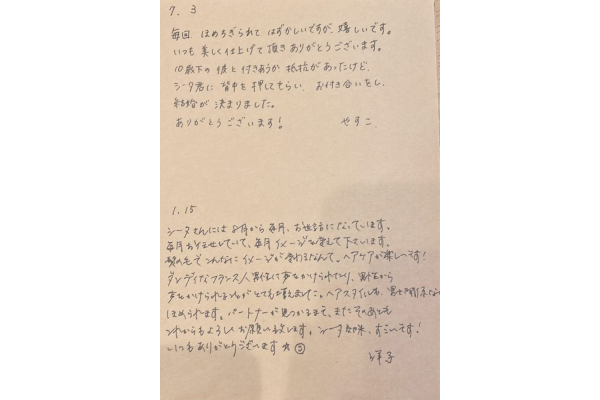 7. 3
毎回 ほめちぎられて はずかしいですが、嬉しいです。
いつも 美しく仕上げて頂きありがとうございます。
10歳下の 彼と 付きあうか 抵抗があったけど、
シータ君に 背中を 押してもらい お付き合いをし、
結婚が 決まりました。
ありがとうございます! やすこ
1. 15
シータさんには 8月から 毎月、お世話になっています。
毎月 お任せしていて、毎月 イメージを変えて下さいます。
髪の毛で こんなに イメージが 変わるなんて。ヘアケアが 楽しいです!
ダンディなフランス人男性に声をかけられたり、男性から
声をかけられることがとても増えました。ヘアスタイルも、男女
ほめられます。パートナーが見つかるまで、またそのあとも
これからもよろしくお願い致します。シータ 、すごいです!
いつもありがとうございます
洋子